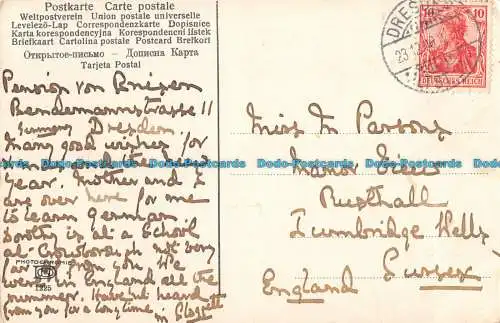 Postkarte Carte postale
Weltpostverein Union postale universelle
Levelező-Lap Correspondenzkarte Dopisnice
Karta korespondencyjna Korespondencni listek
Briefkaart Cartolina postale Postcard Brefkort
Открытое-письмо — Дописна Карта
Tarjeta Postal
Pension von
Bendemannstrasse 11
Germany Dresden
Many good wishes for
year. Mother and I
are over here for me
to learn German
is at a School
at Crowboro' not very
far from you. We
were in England all the
summer. Have not heard
from you for a long time.
PHOTOCHROMIE
1325
Miss M Parsons
Manor
Rusthall
Tunbridge Wells
Sussex
England
DRESDEN
10 10
DEUTSCHES REICH
Dodo-Postcards Dodo-Postcards Dodo-Postcards